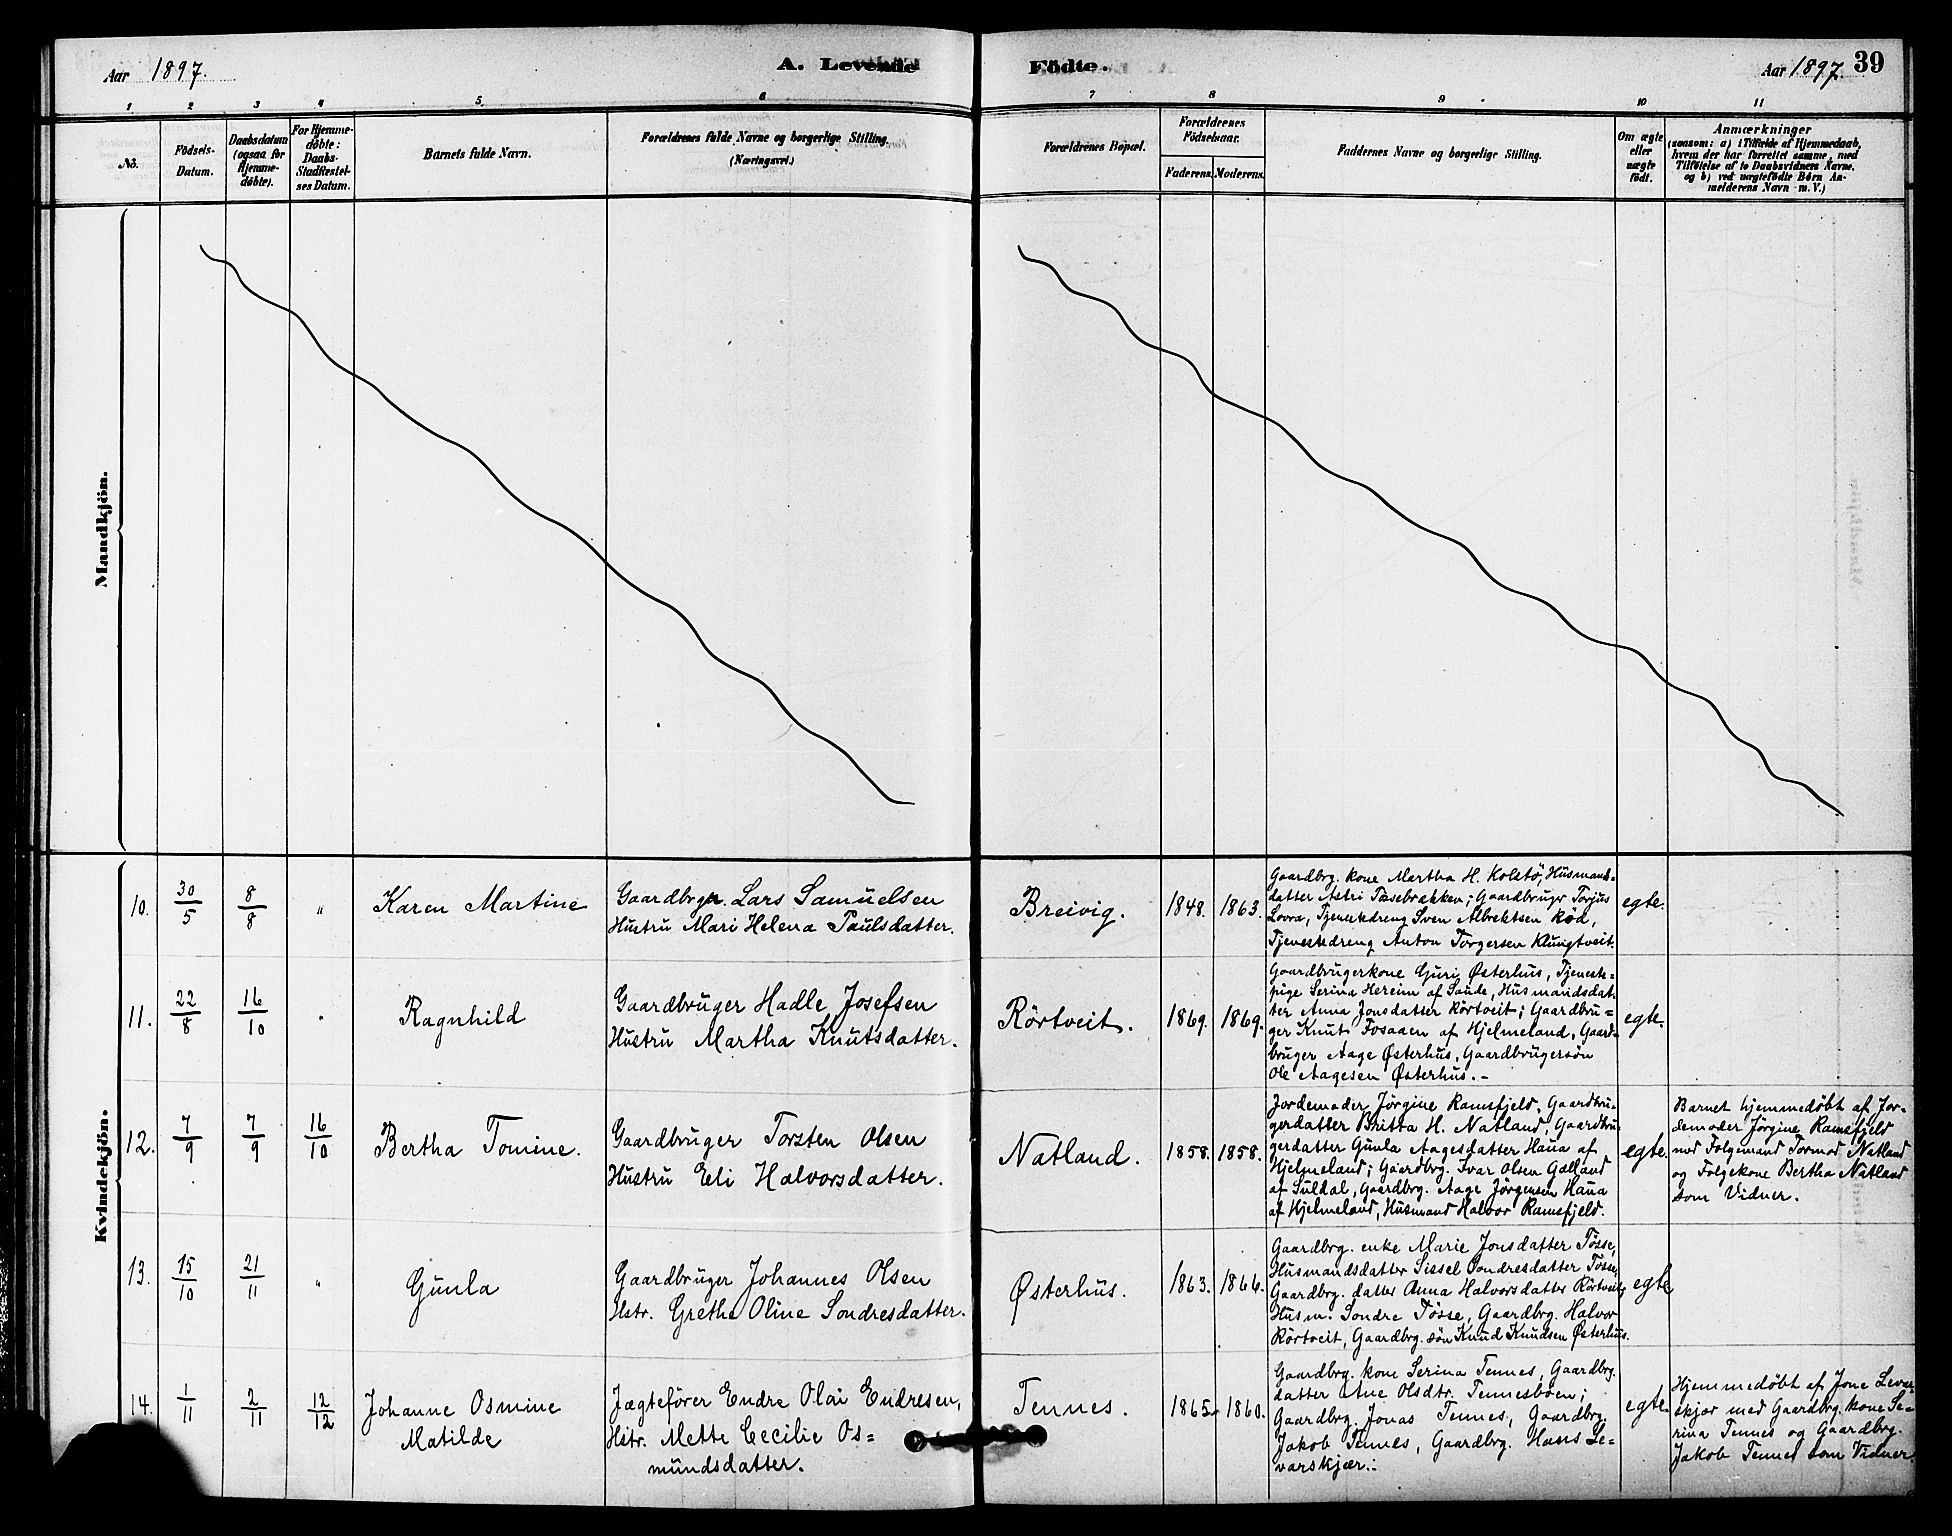 Aar 1897.
A. Levende Födte.
Aar 1897.
39
1 2 3 4 5 6 7 8 9 10 11
No.
Födsels-
Datum.
Daabsdatum
(ogsaa for
Hjemme-
döbte).
For Hjemme-
döbte:
Daabs-
Stadfestel-
ses Datum.
Barnets fulde Navn.
Forældrenes fulde Navne og borgerlige Stilling.
(Næringsvei.)
Forældrenes Bopæl.
Forældrenes
Födselsaar.
Faderens. Moderens.
Faddernes Navne og borgerlige Stilling.
Om ægte
eller
uægte
födt.
Anmærkninger
(saasom: a) i Tilfælde af Hjemmedaab,
hvem der har forrettet samme, med
Tilföielse af to Daabsvidners Navne.
og b) ved uægtefödte Börn An-
melderens Navn m. V.)
Mandkjön.
Kvindekjön.
10.
30/5
8/8
"
Karen Martine
Gaardbrgr. Lars Samuelsen
Hustru Mari Helena Paulsdatter.
Breivig.
1848.
1863.
Gaardbrg. kone Martha H. Kolstö, Husmands-
datter Astri Tøsebrækken; Gaardbrugr Torjus
Lovra, Tjenestedreng Sven Albrektsen Rød,
Tjenestedreng Anton Torgersen Klungtveit.
egte.
11.
22/8
16/10
"
Ragnhild
Gaardbruger Hadle Josefsen
Hustru Martha Knutsdatter.
Rörtveit.
1869.
1869.
Gaardbrugerkone Guri Østerhus, Tjeneste-
pige Serina Hereim af Saude, Husmandsdat-
ter Anna Jonsdatter Rörtveit; Gaardbru-
ger Knut Fosaaen af Hjelmeland, Gaard-
bruger Aage Østerhus, Gaardbrugersön
Ole Aagesen Østerhus.-
egte.
12.
7/9
7/9
16/10
Bertha Tomine.
Gaardbruger Torsten Olsen
Hustru Eli Halvorsdatter.
Natland.
1858.
1858.
Jordemoder Jørgine Ramsfjeld, Gaardbru-
gerdatter Britta H. Natland, Gaardbru-
gerdatter Gunla Aagesdatter Haua af
Hjelmeland; Gaardbrg. Ivar Olsen Galland
af Suldal, Gaardbrg. Aage Jörgensen Haua
af Hjelmeland, Husmand Halvor Ramsfjeld.
egte.
Barnet hjemmedöbt af Jor-
demoder Jørgine Ramsfjeld
med Folgemand Tormod Natland
og Folgekone Bertha Natland
som Vidner.
13.
15/10
21/11
"
Gunla
Gaardbruger Johannes Olsen
Hstr. Grethe Oline Sondresdatter.
Østerhus.
1863.
1864.
Gaardbrg. enke Marie Jonsdatter Tösse,
Husmandsdatter Sissel Sondresdatter Tösse,
Gaardbrg. datter Anna Halvorsdatter Rörtveit,
Husm. Sondre Tösse, Gaardbrg. Halvor
Rörtveit, Gaardbrg. sön Knud Knudsen Østerhus.
egte
14.
1/11
2/11
12/12
Johanne Osmine
Matilde
Jægtefører Endre Olai Endresen,
Hstr. Mette Cecilie Os=
mundsdatter.
Tennes.
1865.
1860.
Gaardbrg. kone Serina Tennes, Gaardbrg.
datter Ane Olsdtr. Tennesböen;
Gaardbrg. Jonas Tennes, Gaardbrg.
Jakob Tennes, Gaardbrg. Hans Le=
varskjær.-
egte.
Hjemmedøbt af Jone Levar-
skjær med Gaardbrg. kone Se-
rina Tennes og Gaardbrg.
Jakob Tennes som Vidner.